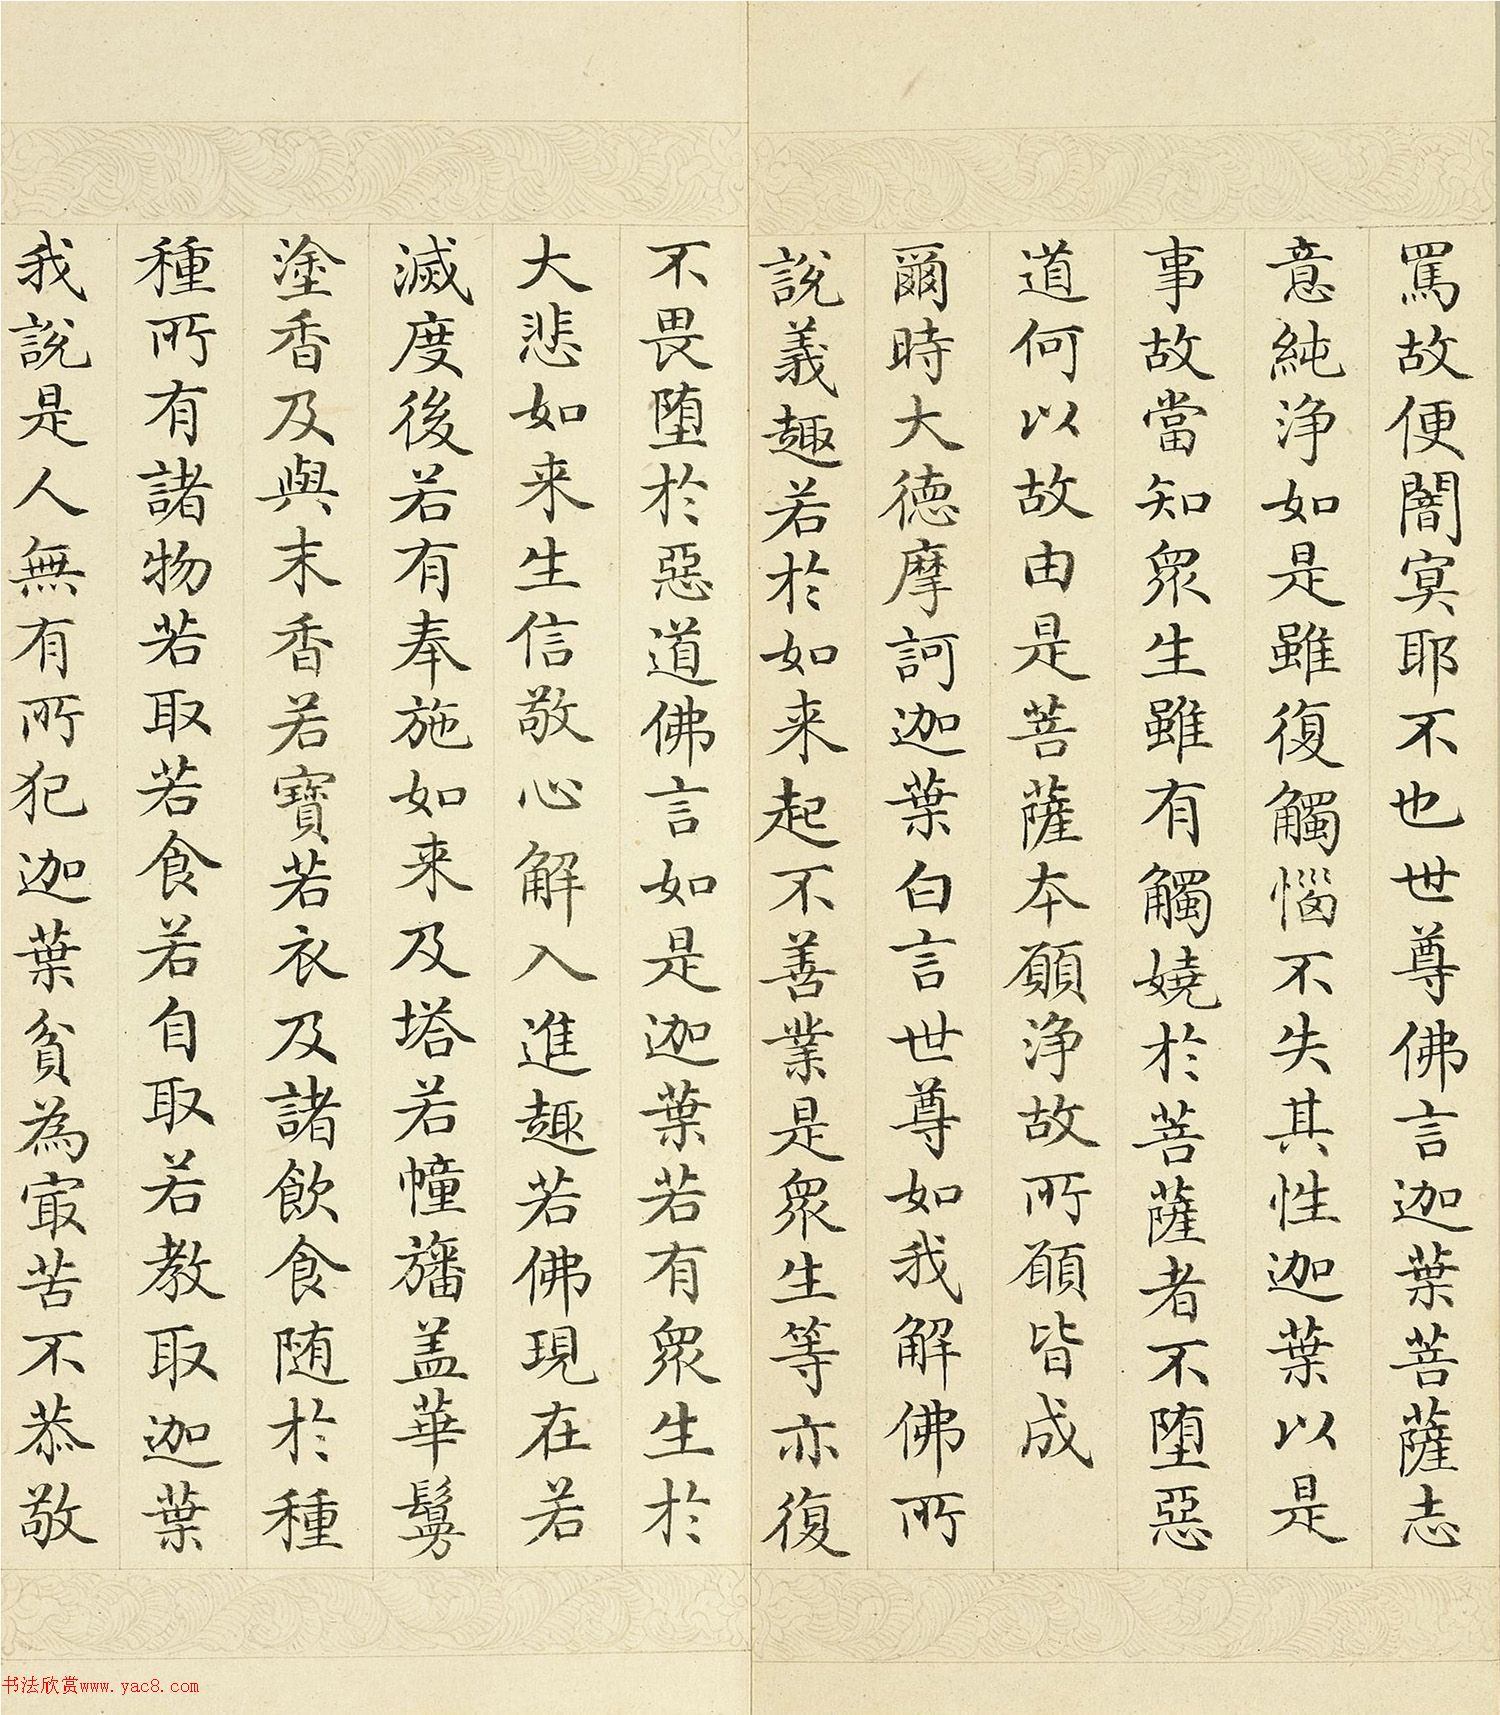 罵故便闇冥耶不也世尊佛言迦葉菩薩志
意純淨如是雖復觸惱不失其性迦葉以是
事故當知眾生雖有觸嬈於菩薩者不墮惡
道何以故由是菩薩本願淨故所願皆成
爾時大德摩訶迦葉白言世尊如我解佛所
說義趣若於如来起不善業是眾生等亦復
不畏墮於惡道佛言如是迦葉若有眾生於
大悲如来生信敬心解入進趣若佛現在若
滅度後若有奉施如来及塔若幢旛盖華鬘
塗香及與末香若寶若衣及諸飲食随於種
種所有諸物若取若食若自取若教取迦葉
我說是人無有所犯迦葉貧為㝡苦不恭敬
书法欣赏www.yac8.com